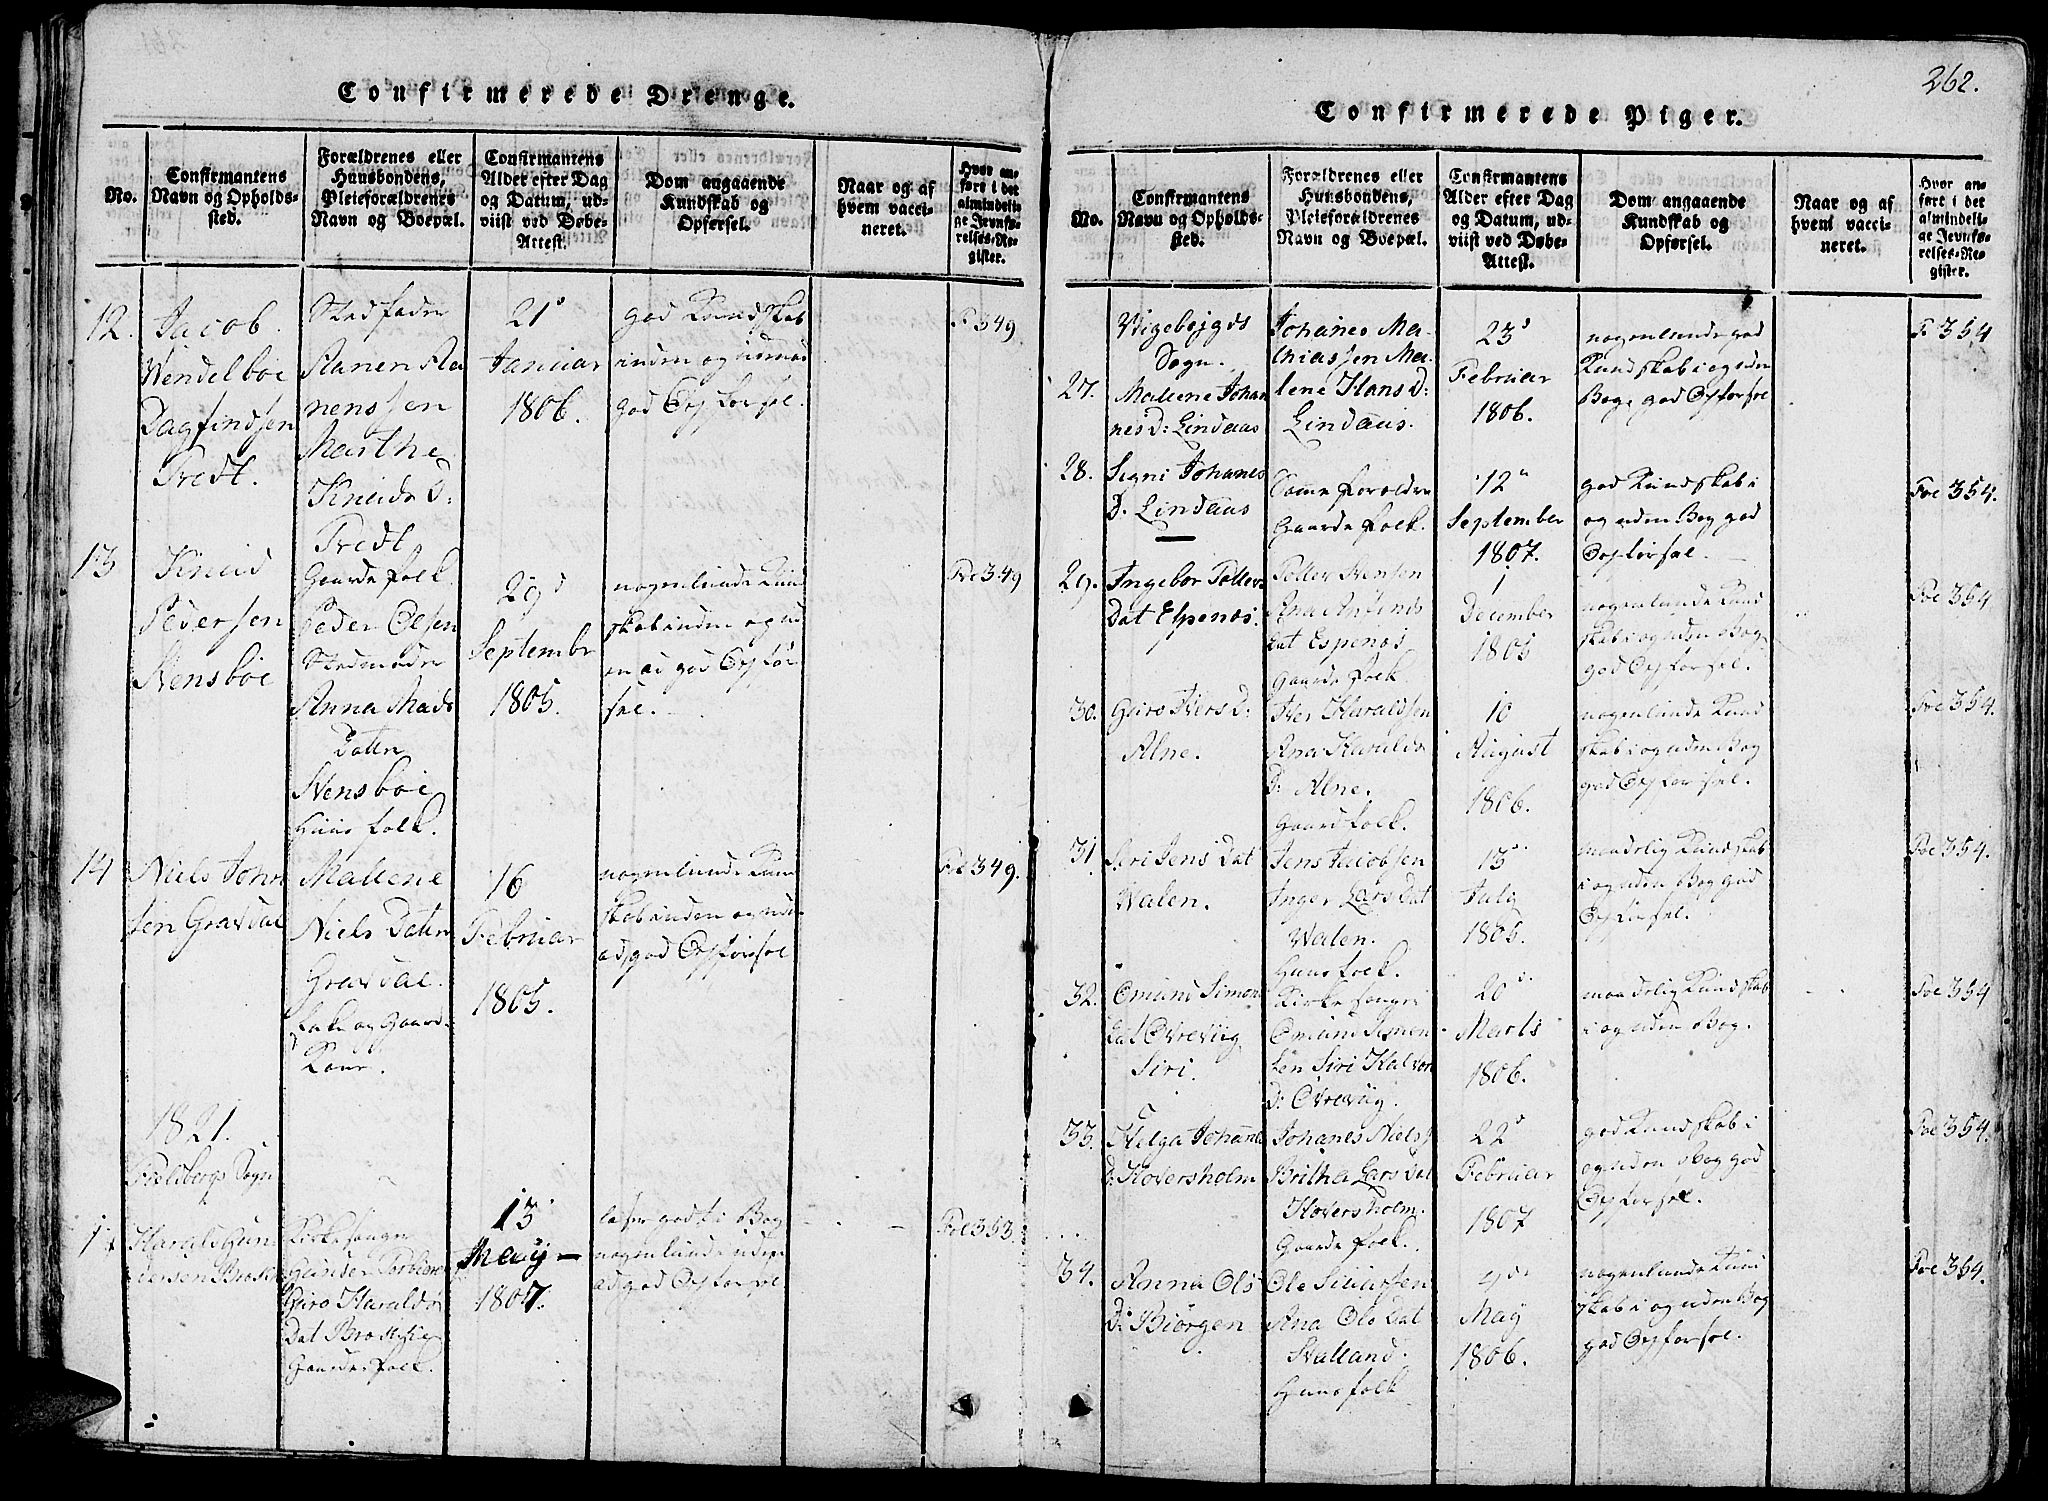 Confirmerede Drenge.
No.
Confirmantens
Navn og Opholds-
sted.
Forældrenes eller
Huusbondens,
Pleieforældrenes
Navn og Boepæl.
Confirmantens
Alder efter Dag
og Datum, ud-
viist ved Døbe-
Attest.
Dom angaaende
Kundskab og
Opførsel.
Naar og af
hvem vacci-
neret.
Hvor an-
ført i det
almindeli-
ge Jevnfø-
relses-Re-
gister.
12.
Jacob
Wendelboe
Dagfindsen
Tredt.
Stedfader
Aanen Aa
nenssen
Marthe
Knuds D:
Tredt
Gaardefolk.
21d
Januar
1806.
god Kundskab
inden og udenad
god Opførsel.
F 349
13
Knud
Pedersen
Stensboe
Peder Olsen
Stedmoder
Anna Mads
Datter
Stensboe
Huusfolk.
29d
September
1805.
nogenlunde Kund
skab inden og ud
en ad god Opfør
sel.
Foe 349
14
Niels John
sen Gravdal
Mallene
Niels Datter
Gravdal.
Enke og Gaard
Kone.
16
Februar
1805.
nogenlunde Kund
skab inden og uden
ad, god Opførsel
Foe 349.
1821.
Fielsbergs Sogn
1.
Harald Gun
dersen
Kirkesanger
Gunder
Giro Haralds
Dat
Gaardefolk.
13
May —
1807.
læser godt i Bog
nogenlunde uden
ad god Opførsel
Foe 353.
262.
Confirmerede Piger.
No.
Confirmantens
Navn og Opholds-
sted.
Forældrenes eller
Huusbondens,
Pleieforældrenes
Navn og Boepæl.
Confirmantens
Alder efter Dag
og Datum, ud-
viist ved Døbe-
Attest.
Dom angaaende
Kundskab og
Opførsel.
Naar og af
hvem vacci-
neret.
Hvor an-
ført i det
almindeli-
ge Jevnfø-
relses-Re-
gister.
Vigebøygds
Sogn.
27.
Mallene Johan
nes D: Lindaas
Johanes Ma-
thiassen Ma-
lene Hans D:
Lindaas.
23d
Februar
1806.
nogenlunde god
Kundskab i og uden
Bog, god Opførsel
F 354
28.
Segni Johanes
D. Lindaas
Samme Forældre
Gaardefolk.
12te
September
1807.
god Kundskab i
og uden Bog god
Opførsel.
Foe 354.
29.
Ingebor Tollev
Dat Espenæs.
Tollev Stensen
Ana
Dat Espenæs
Gaardefolk
1
December
1805
nogenlunde Kund
skab i og uden Bog
god Opførsel.
Foe 354
30.
Guro Ivers D:
Alne.
Iver Haraldsen
Ana Haralds
D: Alne.
Gaardfolk.
10
August
1806.
nogenlunde Kund
skab i og uden Bog
god Opførsel.
Foe 354.
31
Seri Jens Dat
Walen.
Jens Jacobsen
Inger Lars Dat
Walen.
Huusfolk.
13
July
1805.
maadelig Kundskab
i og uden Bog god
Opførsel.
Foe 354.
32.
Omund Simon
Dat Øvrevüg
Siri.
Kirkesanger
Omund Simon
sen Siri Halvor
D: Øvrevüg.
20de
Marts
1806.
maadelig Kundskab
i og uden Bog.
Foe 354
33.
Helga Johanes
D: Hoversholm
Johanes Niels
Britha Lars Dat
Hoversholm.
Gaardefolk.
22d
Februar
1807
god Kundskab i
og uden Bog god
Opførsel.
Foe 354.
34.
Anna Ols
D: Biörgen
Ole Siversen
Ana Ols Dat
Stalland.
Huusfolk
4de
May
1806.
nogenlunde Kund
skab i og uden Bog
god Opførsel.
Foe 354.